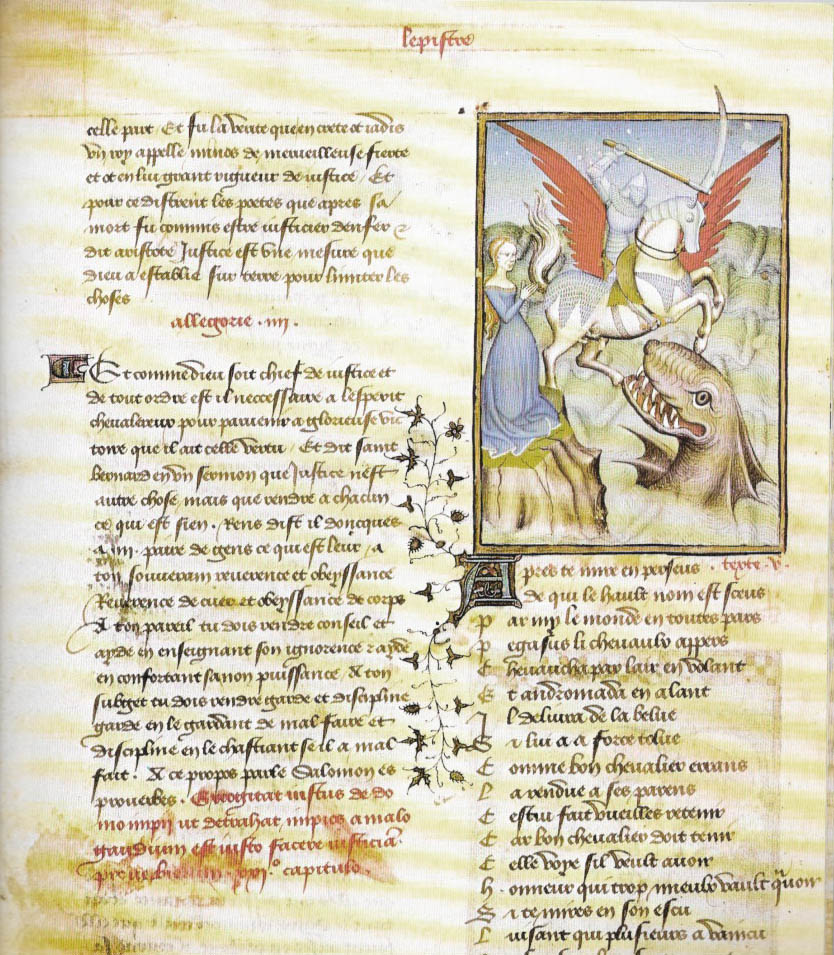 lepistre
celle part / Et fu la verite que en crete ot iadis
vn roy appelle minos de merueilleuse fierte
et ot en lui grant vigueur de iustice / Et
pour ce distrent les poetes que apres sa
mort fu commis estre iusticier denfer &
dit aristote Justice est vne mesure que
dieu a establie sur terre pour limiter les
choses
allegorie . iiii .
Et comme dieu soit chief de iustice et
de tout ordre est il neccessaire a lesperit
cheualereux pour paruenir a glorieuse vic
toire que il ait celle vertu / Et dit saint
bernard en vn sermon que Justice nest
autre chose mais que rendre a chacun
ce qui est sien . Rens dist il doncques
a iii . paire de gens ce qui est leur / a
ton souuerain reuerence et obeyssance
Reuerence de cuer et obeyssance de corps
A ton pareil tu dois rendre conseil et
ayde en enseignant son ignorence & ayde
en confortant sa non puissance A ton
subget tu dois rendre garde et discipline
garde en le gardant de mal faire et
discipline en le chastiant se il a mal
fait . A ce propos parle Salomon es
prouerbes . Excogitat iustus de do
mo impii ut detrahat impios a malo
gaudium est iusto facere iusticiam
prouerbiorum . xxi.º capitulo .
Apres te mire en perseus . texte . v .
de qui le hault nom est sceus
par my le monde en toutes pars
pegasus li cheuaulx appers
Cheuaucha par lair en volant
Et andromada en alant
Il deliura de la belue
Si lui a a force tolue
Comme bon cheualier errans
La rendue a ses parens
Cestui fait vueilles retenir
Car bon cheualier doit tenir
Celle voye sil veult auoir
honneur qui trop mieulx vault quauoir
Si te mires en son escu
Luisant qui plusieurs a vaincu